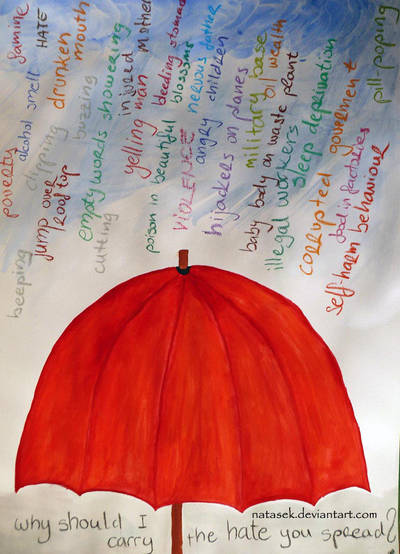 famine
poverty
HATE
alcohol smell
beeping
clipping
jump over
rooftop
drunken
mouth
buzzing
empty words showering
cutting
injured mother
yelling man
bleeding stomac
poison in beautiful blossoms
VIOLENCE
nervous father
angry children
hijackers on planes
military base
oil wealth
baby body on waste plant
illegal workers
sleep deprivation
corrupted government
food in factories
self-harm behaviour
pill-poping
natasek.deviantart.com
why should I carry the hate you spread?